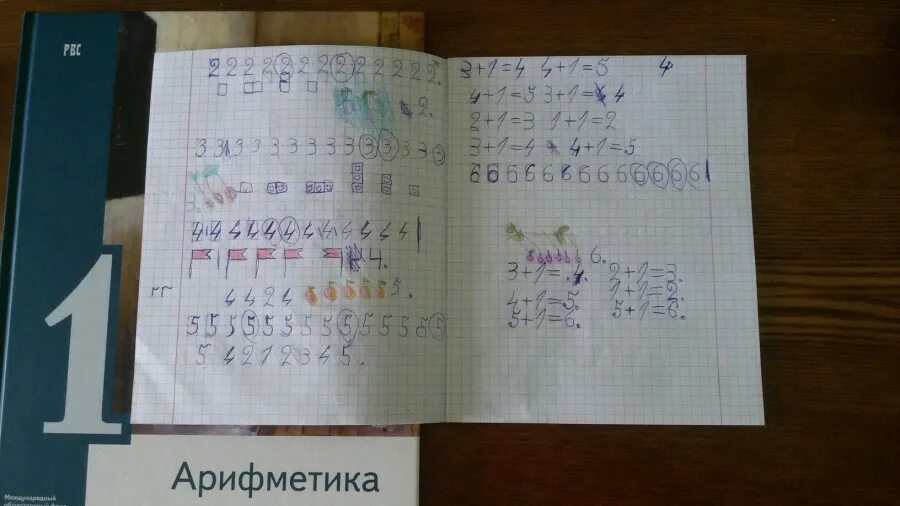 РВС
2 2 2 2 2 2 2 2 2 2 2 2 2.
2.
3 3 3 3 3 3 3 3 3 3 3 3 3
3.
4 4 4 4 4 4 4 4 4 4 4 4
4.
4 4 2 4 5.
5 5 5 5 5 5 5 5 5 5 5 5 5 5
5 4 2 1 2 3 4 5.
3+1=4 4+1=5 4
4+1=5 3+1=4
2+1=3 1+1=2
3+1=4 4+1=5
6 6 6 6 6 6 6 6 6 6 6 6 6
6.
3+1=4. 2+1=3.
4+1=5. 1+1=2.
5+1=6. 5+1=6.
1
Арифметика
Международный